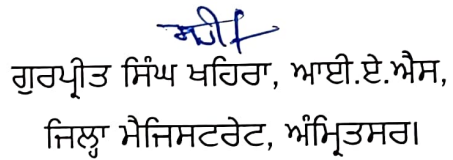 ਸਹੀ/-
ਗੁਰਪ੍ਰੀਤ ਸਿੰਘ ਖਹਿਰਾ, ਆਈ.ਏ.ਐਸ,
ਜਿਲ੍ਹਾ ਮੈਜਿਸਟਰੇਟ, ਅੰਮ੍ਰਿਤਸਰ।